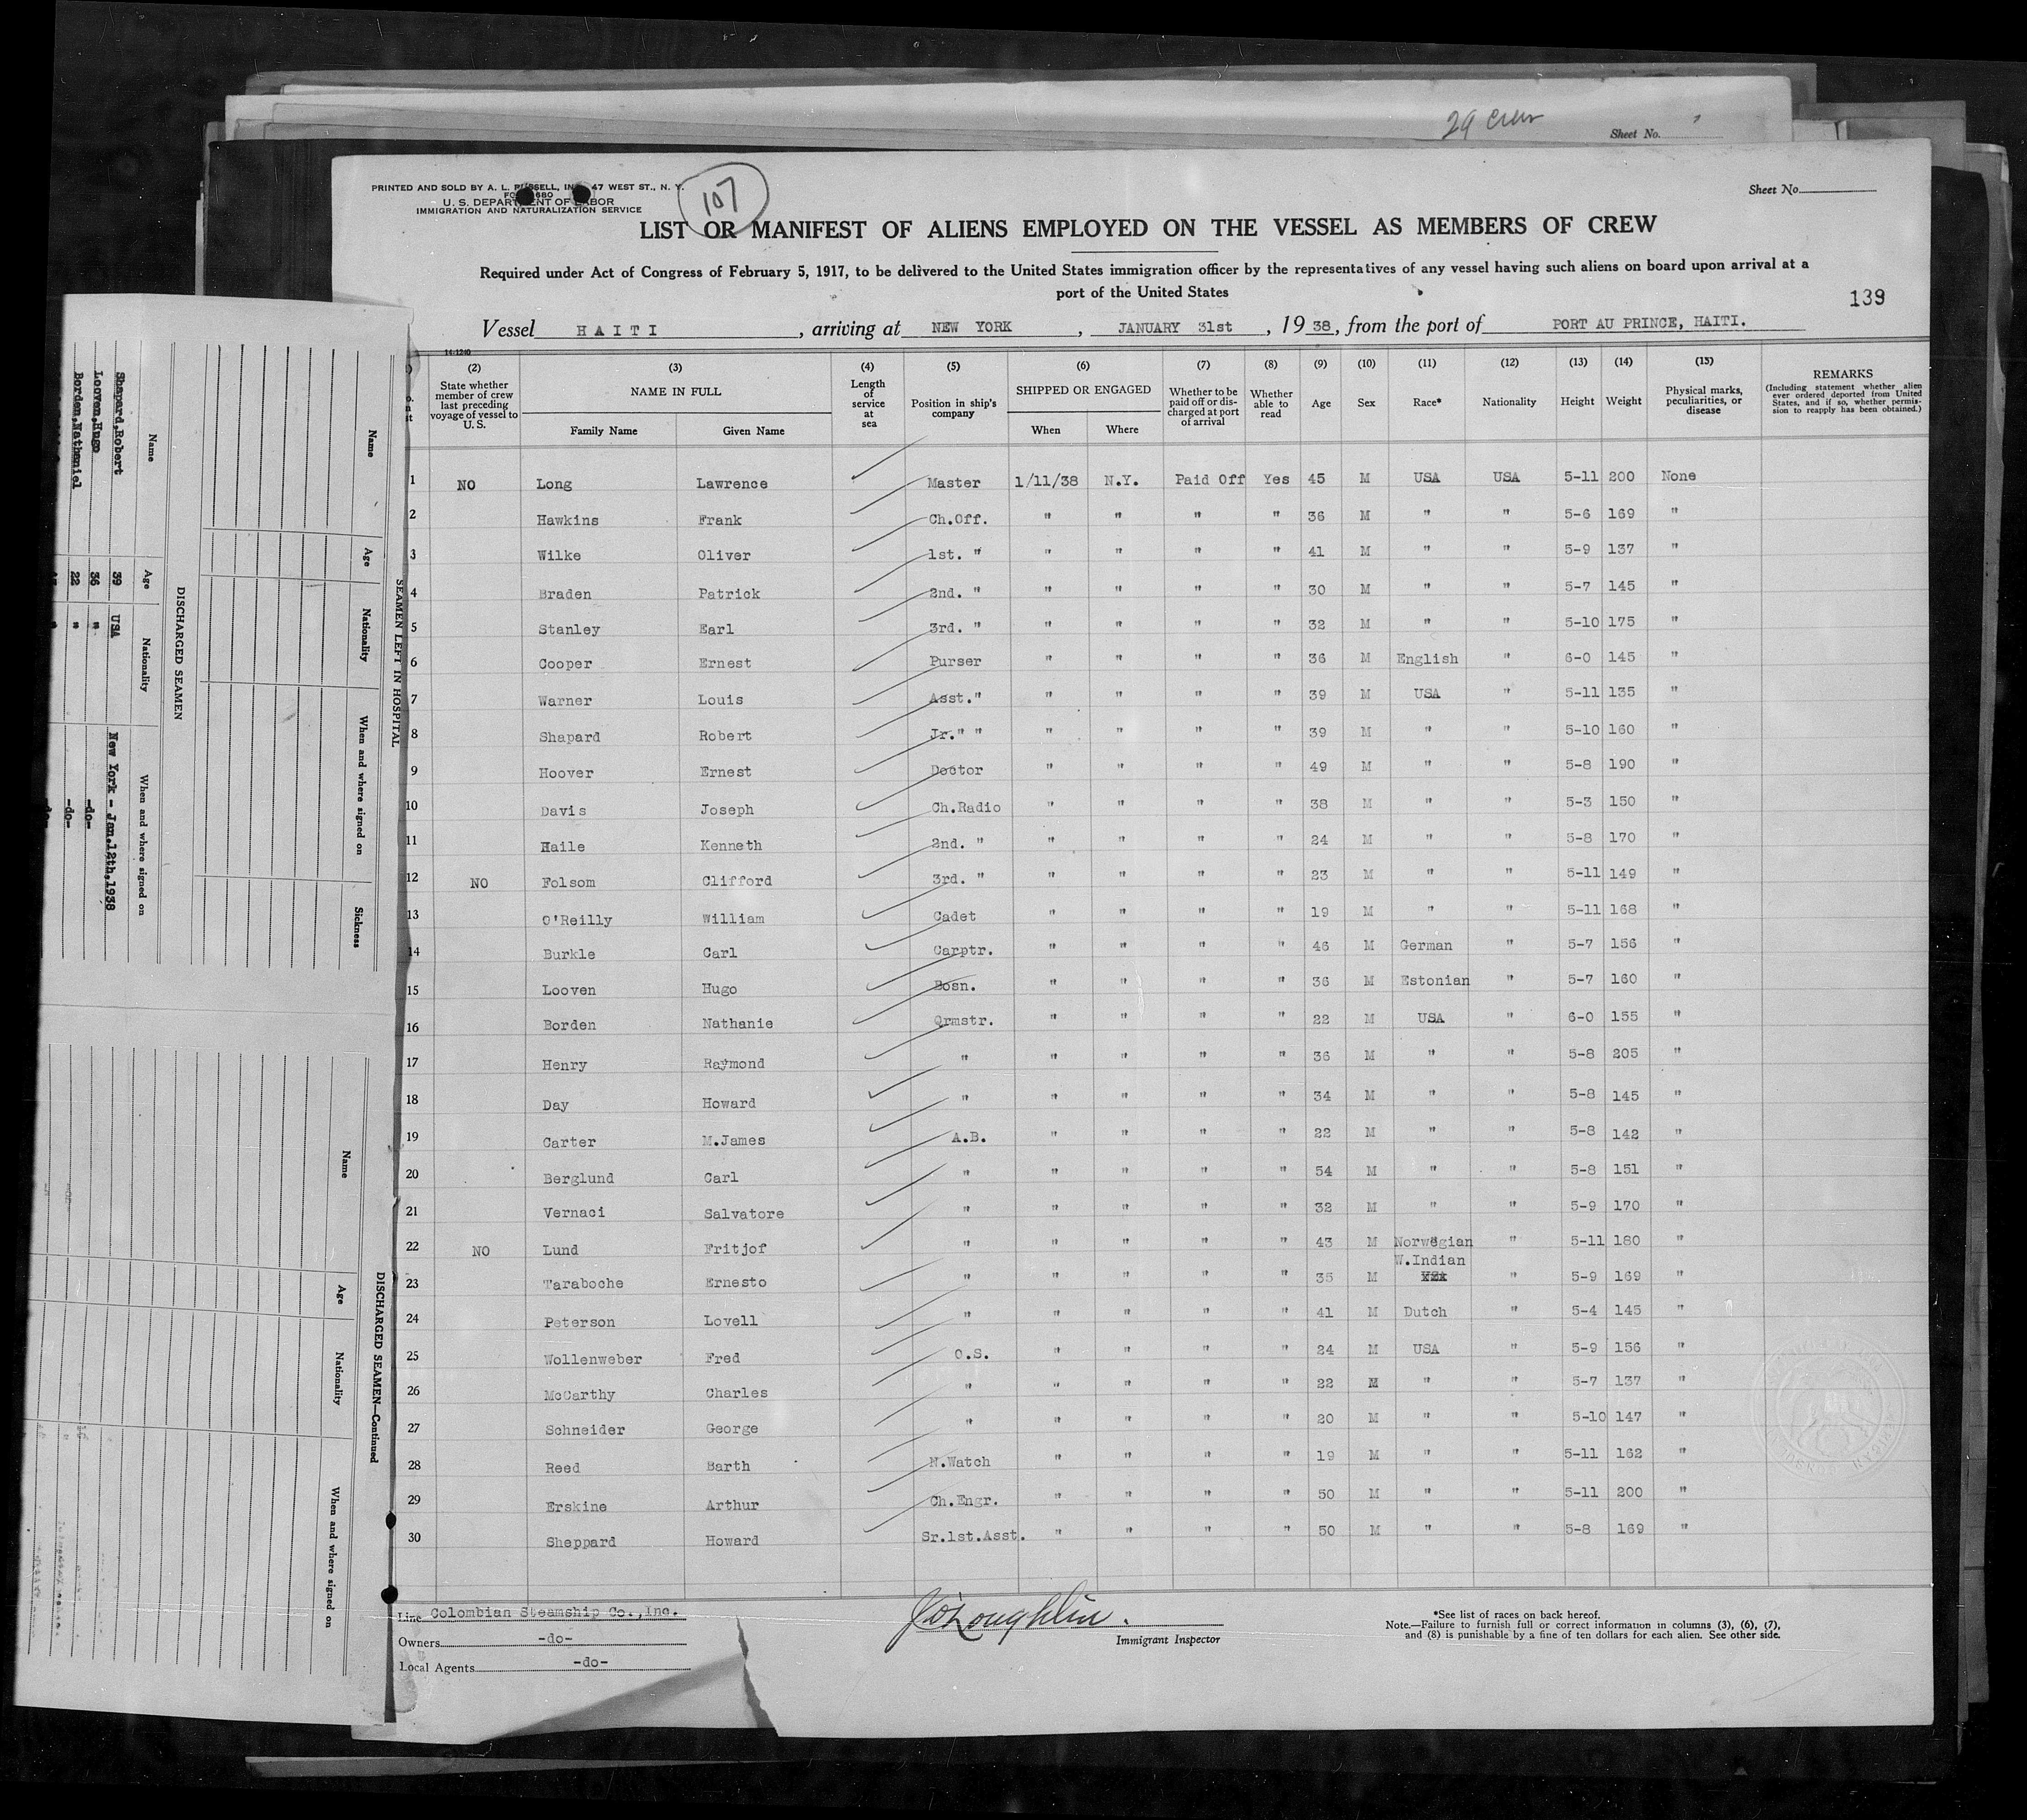 29 Crew
Sheet No.
107
PRINTED AND SOLD BY A. L. RUSSELL, INC. 47 WEST ST., N. Y.
680
U. S. DEPARTMENT OF LABOR
IMMIGRATION AND NATURALIZATION SERVICE
Sheet No.
LIST OR MANIFEST OF ALIENS EMPLOYED ON THE VESSEL AS MEMBERS OF CREW
Required under Act of Congress of February 5, 1917, to be delivered to the United States immigration officer by the representatives of any vessel having such aliens on board upon arrival at a
port of the United States
139
Vessel HAITI, arriving at NEW YORK, JANUARY 31st, 1938, from the port of PORT AU PRINCE, HAITI.
14-1240
(2) State whether member of crew last preceding voyage of vessel to U. S.
(3) NAME IN FULL Family Name Given Name
(4) Length of service at sea
(5) Position in ship's company
(6) SHIPPED OR ENGAGED When Where
(7) Whether to be paid off or discharged at port of arrival
(8) Whether able to read
(9) Age
(10) Sex
(11) Race*
(12) Nationality
(13) Height
(14) Weight
(15) Physical marks, peculiarities, or disease
REMARKS (Including statement whether alien ever ordered deported from United States, and if so, whether permission to reapply has been obtained.)
1 NO Long Lawrence Master 1/11/38 N.Y. Paid Off Yes 45 M USA USA 5-11 200 None
2 Hawkins Frank Ch.Off. " " " " 36 M " " 5-6 169 "
3 Wilke Oliver 1st. " " " " " 41 M " " 5-9 137 "
4 Braden Patrick 2nd. " " " " " 30 M " " 5-7 145 "
5 Stanley Earl 3rd. " " " " " 32 M " " 5-10 175 "
6 Cooper Ernest Purser " " " " 36 M English " 6-0 145 "
7 Warner Louis Asst." " " " " 39 M USA " 5-11 135 "
8 Shapard Robert Jr." " " " " " 39 M " " 5-10 160 "
9 Hoover Ernest Doctor " " " " 49 M " " 5-8 190 "
10 Davis Joseph Ch.Radio " " " " 38 M " " 5-3 150 "
11 Haile Kenneth 2nd. " " " " " 24 M " " 5-8 170 "
12 NO Folsom Clifford 3rd. " " " " " 23 M " " 5-11 149 "
13 O'Reilly William Cadet " " " " 19 M " " 5-11 168 "
14 Burkle Carl Carptr. " " " " 46 M German " 5-7 156 "
15 Looven Hugo Bosn. " " " " 36 M Estonian " 5-7 160 "
16 Borden Nathanie Qrmstr. " " " " 22 M USA " 6-0 155 "
17 Henry Raymond " " " " " 36 M " " 5-8 205 "
18 Day Howard " " " " " 34 M " " 5-8 145 "
19 Carter M.James A.B. " " " " 22 M " " 5-8 142 "
20 Berglund Carl " " " " " 54 M " " 5-8 151 "
21 Vernaci Salvatore " " " " " 32 M " " 5-9 170 "
22 NO Lund Fritjof " " " " " 43 M Norwegian " 5-11 180 "
23 Taraboche Ernesto " " " " " 35 M W.Indian " 5-9 169 "
24 Peterson Lovell " " " " " 41 M Dutch " 5-4 145 "
25 Wollenweber Fred O.S. " " " " 24 M USA " 5-9 156 "
26 McCarthy Charles " " " " " 22 M " " 5-7 137 "
27 Schneider George " " " " " 20 M " " 5-10 147 "
28 Reed Barth N.Watch " " " " 19 M " " 5-11 162 "
29 Erskine Arthur Ch.Engr. " " " " 50 M " " 5-11 200 "
30 Sheppard Howard Sr.1st.Asst. " " " " 50 M " " 5-8 169 "
Line Colombian Steamship Co.,Inc.
Owners -do-
Local Agents -do-
J O'Loughlin.
Immigrant Inspector
*See list of races on back hereof.
Note.—Failure to furnish full or correct information in columns (3), (6), (7),
and (8) is punishable by a fine of ten dollars for each alien. See other side.
SEAMEN LEFT IN HOSPITAL
Name Age Nationality When and where signed on Sickness
DISCHARGED SEAMEN
Name Age Nationality When and where signed on
Shapard,Robert 39 USA New York - Jan.12th,1938
Looven,Hugo 36 " -do-
Borden,Nathaniel 22 " -do-
-do-
DISCHARGED SEAMEN—Continued
Name Age Nationality When and where signed on